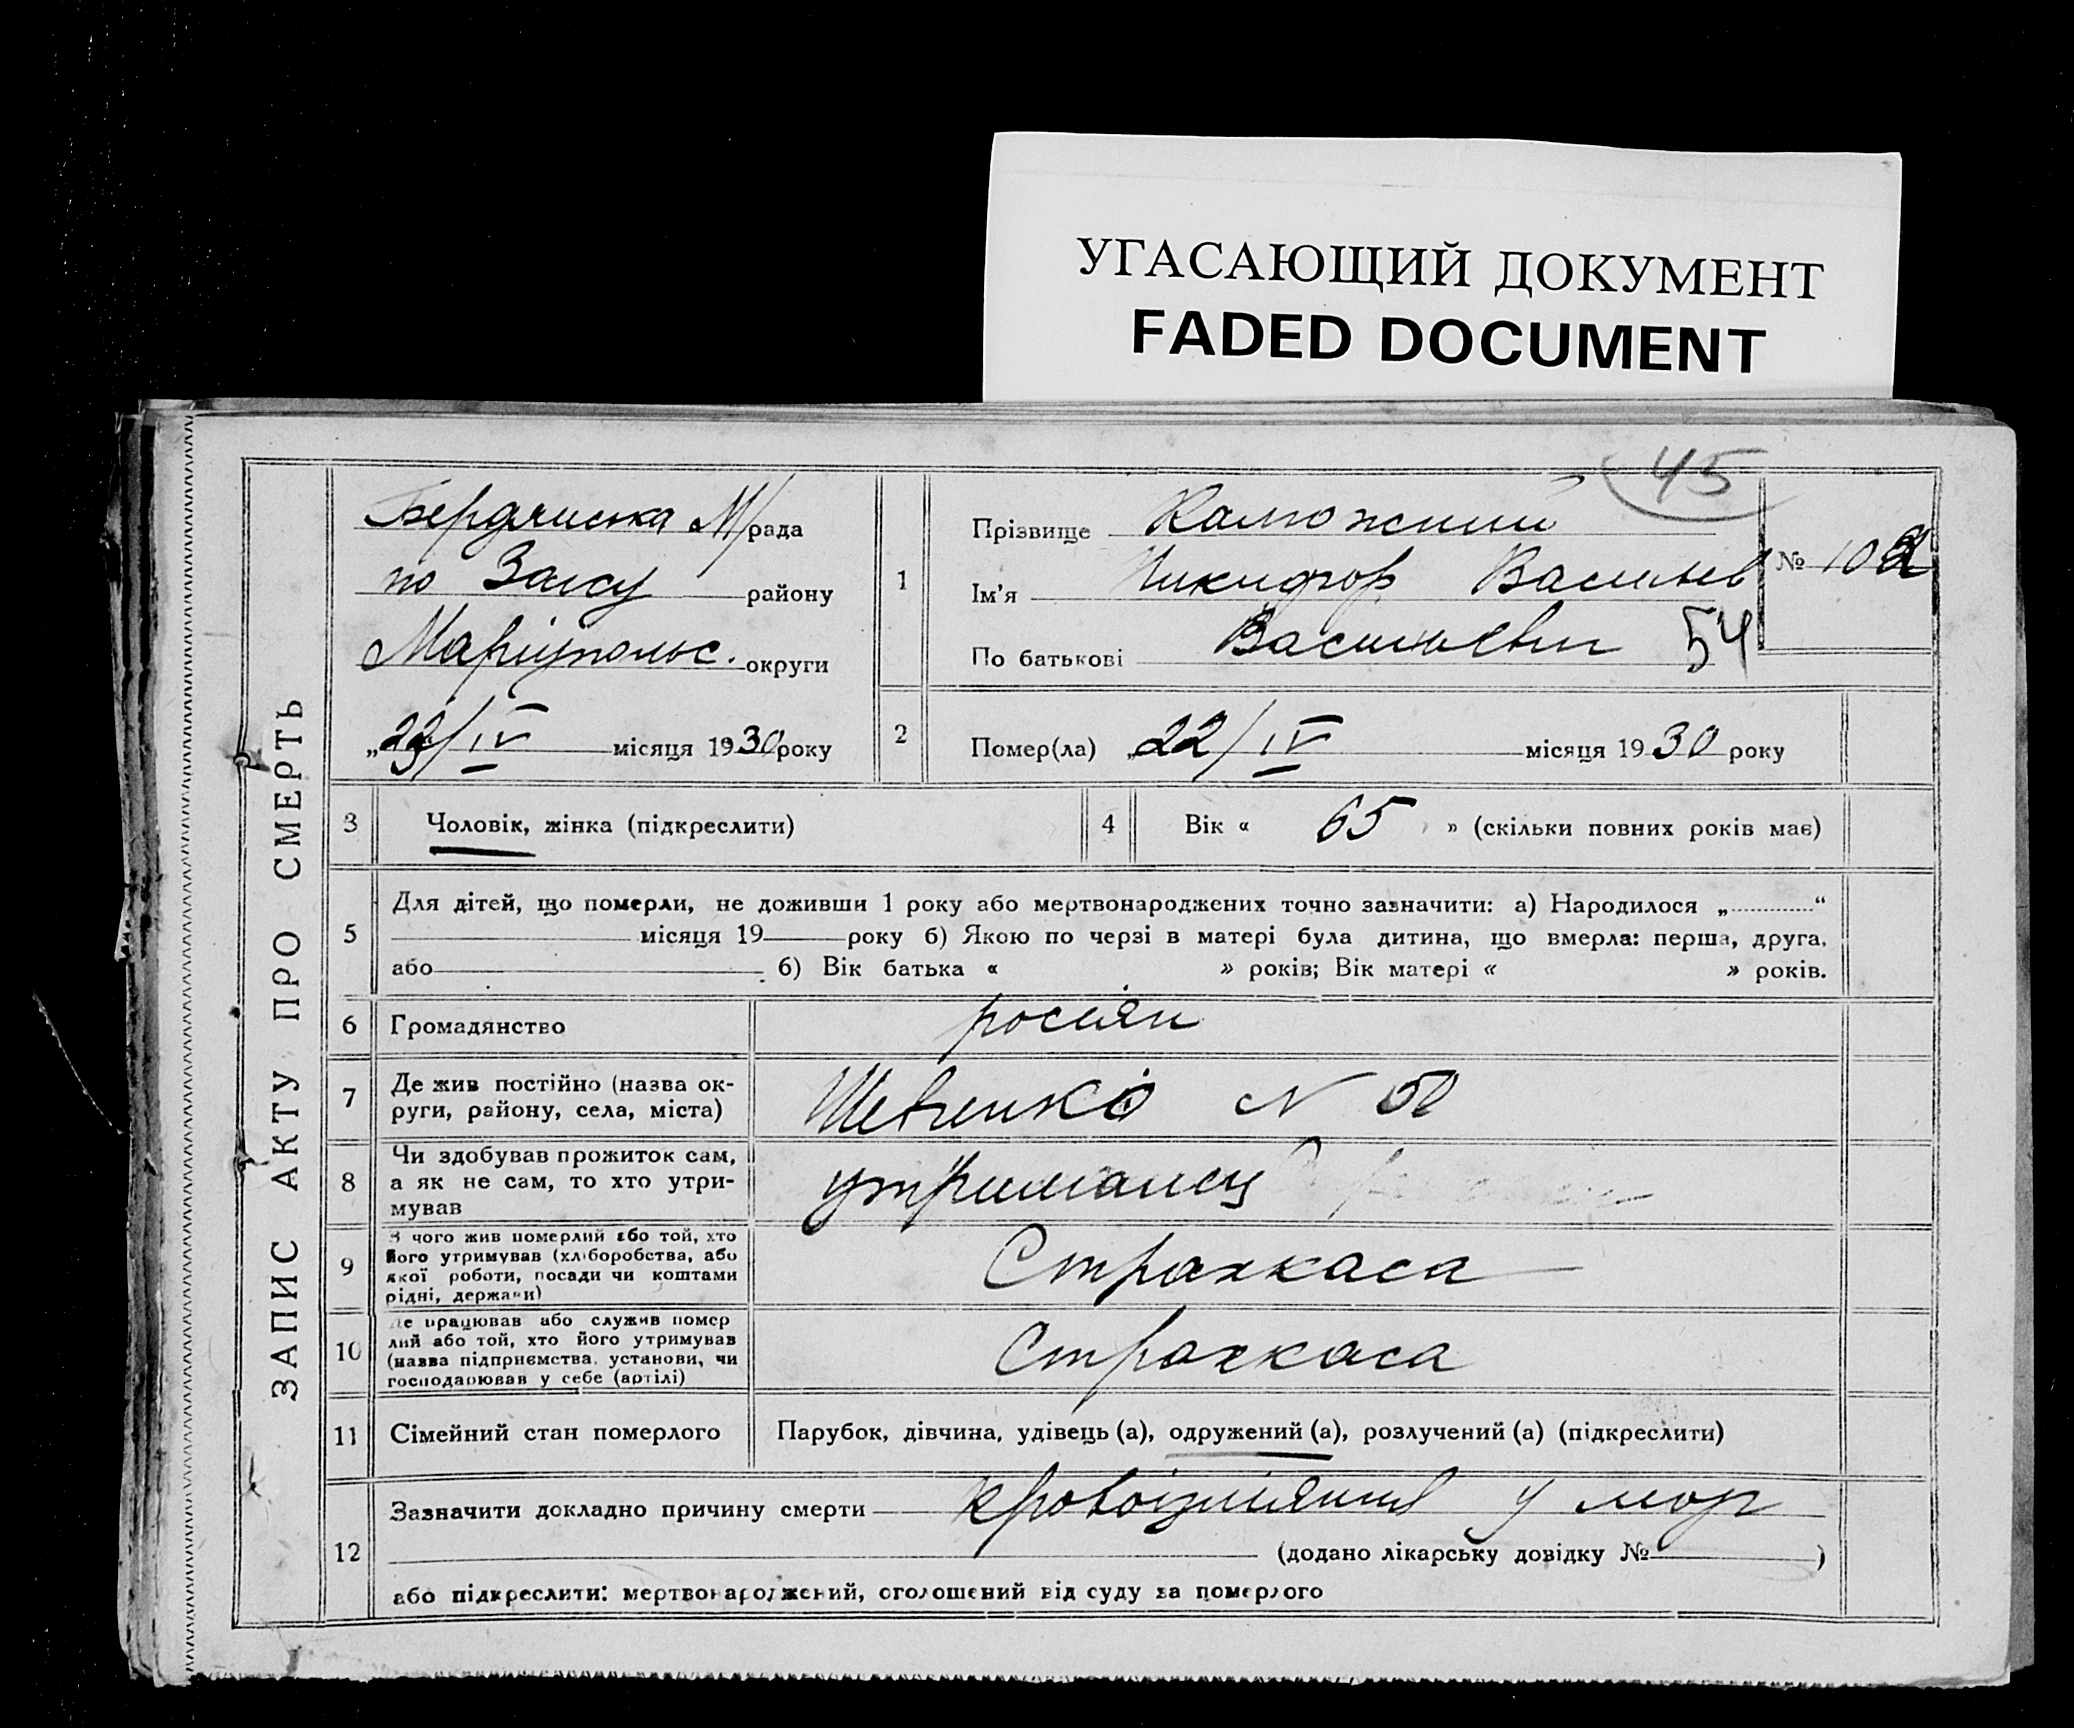 УГАСАЮЩИЙ ДОКУМЕНТ
FADED DOCUMENT
45
ЗАПИС АКТУ ПРО СМЕРТЬ
Бердянська М/рада
по Загсу району
Маріупольс. округи
„23/IV місяця 1930 року
1
Прізвище Каможний
Ім'я Никифор Васильев
По батькові Васильевич 54
№ 102
2
Помер(ла) „22/IV місяця 1930 року
3 Чоловік, жінка (підкреслити)
4 Вік « 65 » (скільки повних років має)
5
Для дітей, що померли, не доживши 1 року або мертвонароджених точно зазначити: а) Народилося „ “
місяця 19 року б) Якою по черзі в матері була дитина, що вмерла: перша, друга,
або б) Вік батька « » років; Вік матері « » років.
6 Громадянство росіян
7 Де жив постійно (назва ок-
руги, району, села, міста)
Шевченко N 50
8 Чи здобував прожиток сам,
а як не сам, то хто утри-
мував
утриманец
9 З чого жив померлий або той, хто
його утримував (хліборобства, або
якої роботи, посади чи коштами
рідні, держави)
Страхкаса
10 Де працював або служив помер
лий або той, хто його утримував
(назва підприємства, установи, чи
господарював у себе (артілі)
Страхкаса
11 Сімейний стан померлого Парубок, дівчина, удівець (а), одружений (а), розлучений (а) (підкреслити)
12
Зазначити докладно причину смерти у мозг
(додано лікарську довідку № )
або підкреслити: мертвонароджений, оголошений від суду за померлого